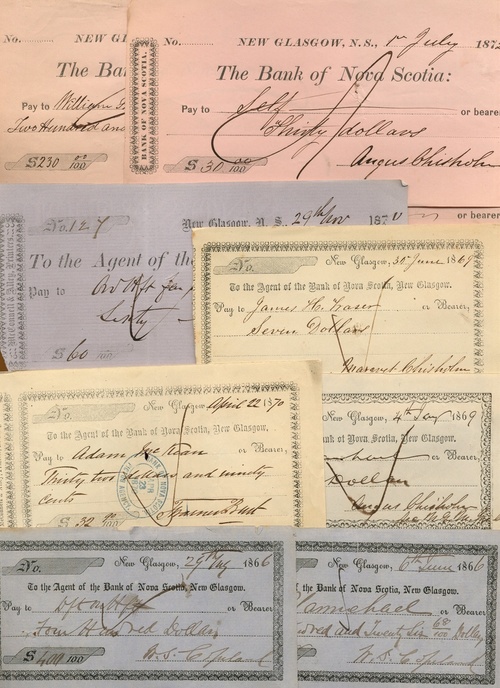 No.
NEW GL
The Ba
Pay to William
Two Hundred and
$230 00/100
BANK OF NOVA SCOTIA.
No.
NEW GLASGOW, N.S., July 187
The Bank of Nova Scotia:
Pay to Self or bearer
Thirty dollars
$30 00/100
Angus Chisholm
or bearer
McConnell & Alley, Printers
No. 127
New Glasgow, N. S. 29th Nov 187
To the Agent of the
Pay to
Sixty
$60 00/100
No.
New Glasgow, 30 June 1869
To the Agent of the Bank of Nova Scotia, New Glasgow.
Pay to James H. Fraser or Bearer,
Seven Dollars
Margaret Chisholm
No.
New Glasgow, April 22 1870
To the Agent of the Bank of Nova Scotia, New Glasgow.
Pay to Adam McKean or Bearer,
Thirty two dollars and ninety
cents
$32 90/100
New Glasgow, 4th 1869
nk of Nova Scotia, New Glasgow.
or Bearer,
Dollars
Angus Chisholm
No.
New Glasgow, 29th 1866
To the Agent of the Bank of Nova Scotia, New Glasgow.
Pay to or Bearer
Four Hundred Dollars
$400 /100
New Glasgow, 6th June 1866
Bank of Nova Scotia, New Glasgow.
Carmichael or Bearer
dred and Twenty Six 68/100 Dollars